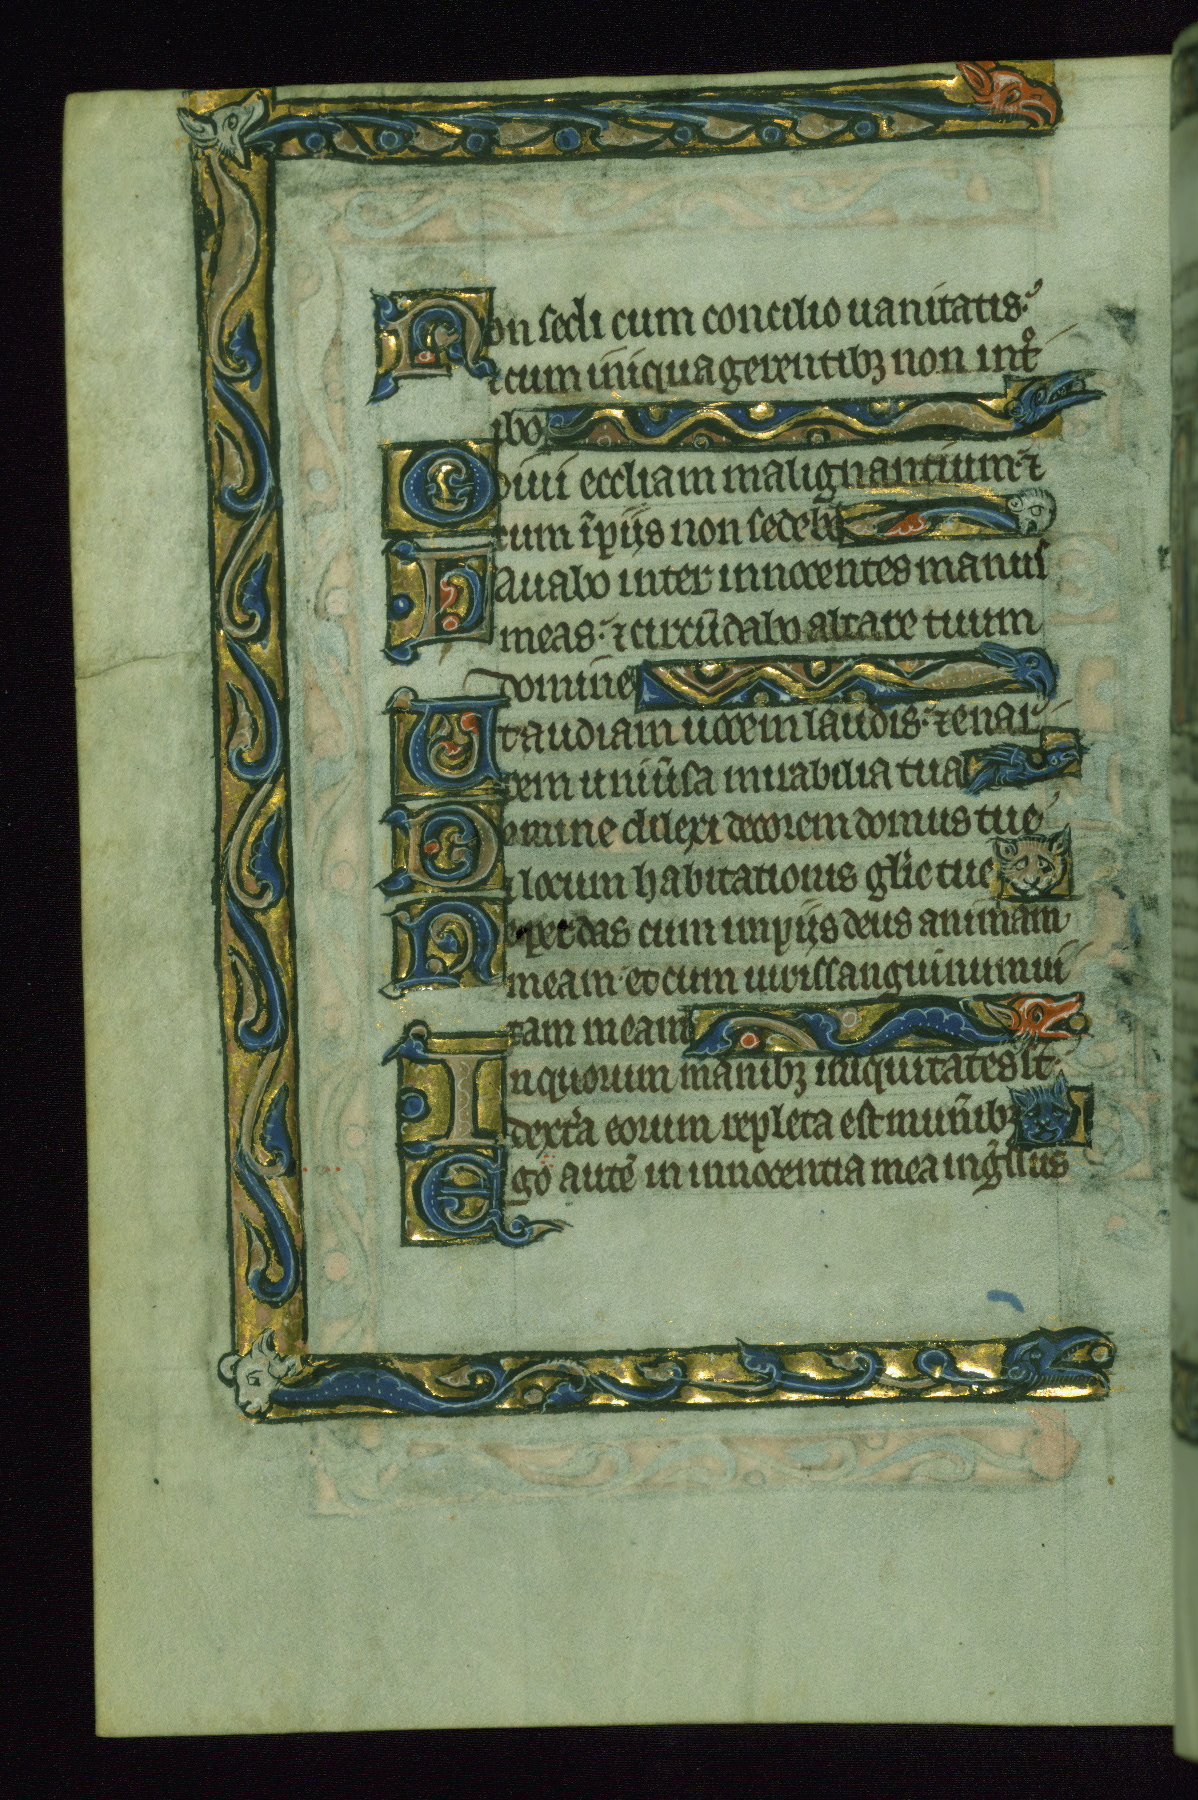 Non sedi cum concilio uanitatis:
⁊ cum iniqua gerentibꝫ non intͦ
ibo
Odiui eccl̄iam malignantium: ⁊
cum īpijs non sedebo
Lauabo inter innocentes manus
meas: ⁊ circūdabo altare tuum
domine
Ut audiam uocem laudis: ⁊ enar
rem uniūsa mirabilia tua
Domine dilexi decorem domus tue
⁊ locum habitationis gl̄ie tue
Ne perdas cum impijs deus animam
meam: et cum uiris sanguinum ui
tam meam
In quorum manibꝫ iniquitates st̄:
dext̄a eorum repleta est mun̄ibꝫ
Ego autē in innocentia mea ing̃ssus